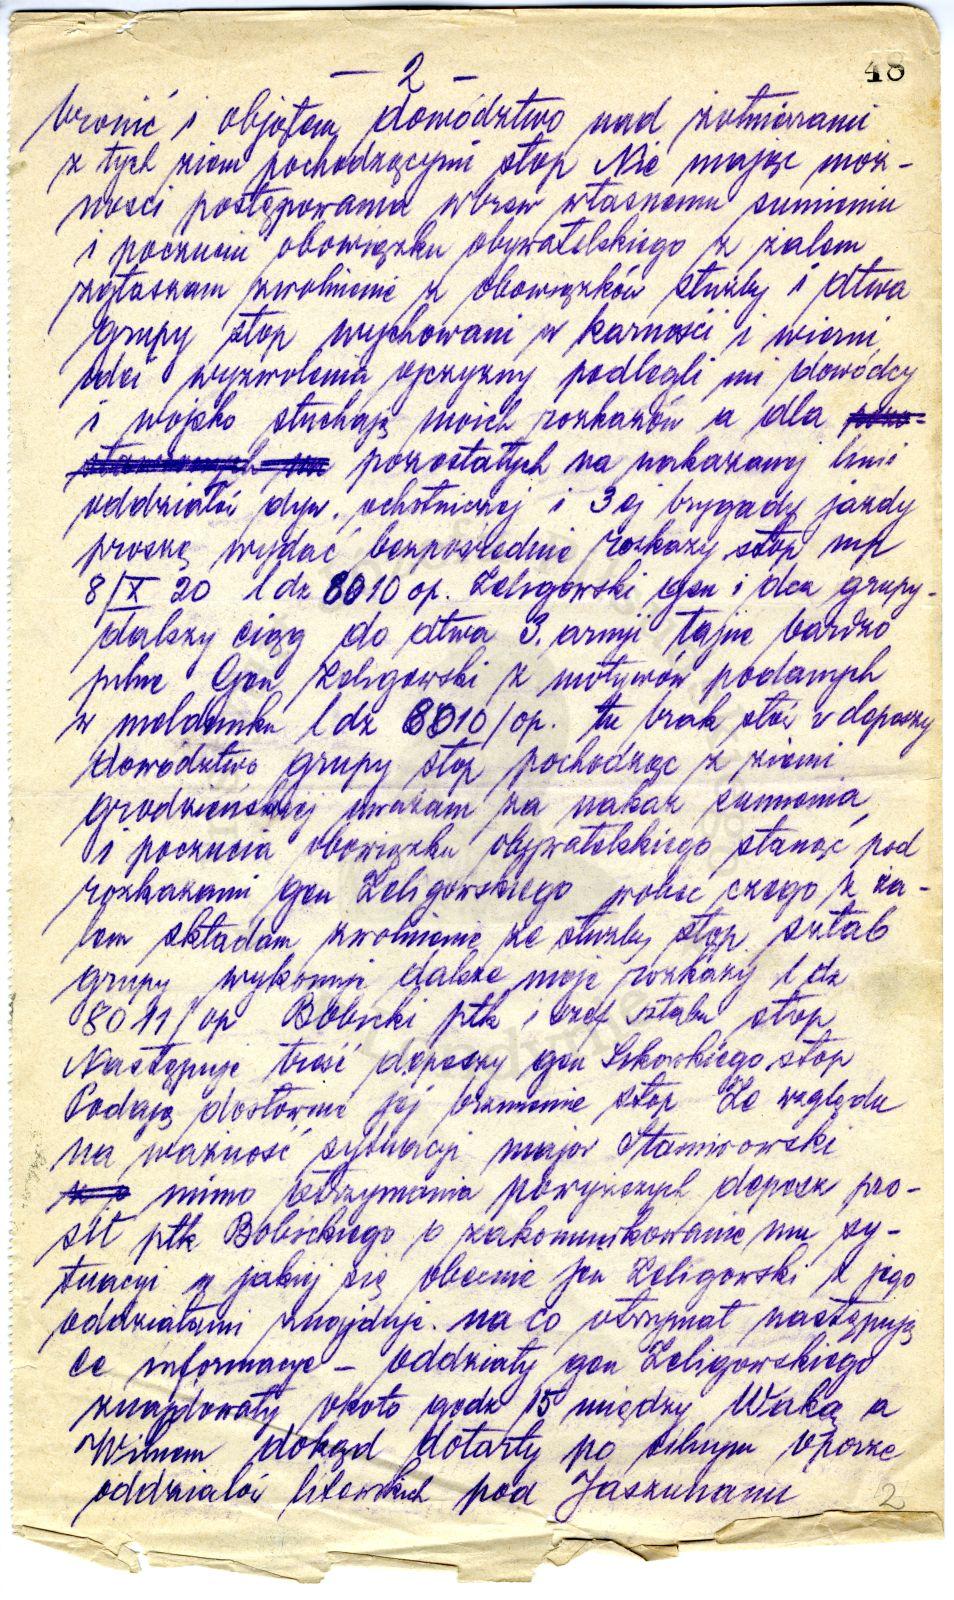 — 2 —
48
bronić i objąłem dowództwo nad żołnierzami
z tych ziem pochodzącymi stop Nie mając moż-
ności postępowania wbrew własnemu sumieniu
i poczuciu obowiązku obywatelskiego z żalem
zgłaszam zwolnienie z obowiązków służby i dtwa
grupy stop wychowani w karności i wierni
idei wyzwolenia ojczyzny podlegli mi dowódcy
i wojsko słuchają moich rozkazów a dla
pozostałych na nakazanej linii
oddziałów dyw. ochotniczej i 3 ej brygady jazdy
proszę wydać bezpośrednie rozkazy stop mp
8/X 20 l dz 8010 op. Żeligowski gen i dca grupy-
dalszy ciąg do dtwa 3. armji tajne bardzo
pilne Gen Żeligowski z motywów podanych
w meldunku l dz 8010/op. tu brak słów w depeszy
dowództwo grupy stop pochodząc z ziemi
grodzieńskiej uważam za nakaz sumienia
i poczucia obowiązku obywatelskiego stanąć pod
rozkazami gen Żeligowskiego wobec czego z ża-
lem składam zwolnienie ze służby stop sztab
grupy wykonuje dalsze moje rozkazy l dz
8011/op Bobicki płk i szef sztabu stop
Następuje treść depeszy gen Sikorskiego stop
Podaję dosłownie jej brzmienie stop Ze względu
na ważność sytuacji major Stamirowski
mimo otrzymania powyższych depesz pro-
sił płk Bobickiego o zakomunikowanie mu sy-
tuacji w jakiej się obecnie gen Żeligowski z jego
oddziałami znajduje. na co otrzymał następują
ce informacje – oddziały gen Żeligowskiego
znajdowały około godz 15 między Waką a
Wilnem dokąd dotarły po silnym oporze
oddziałów litewskich pod Jaszunami
2